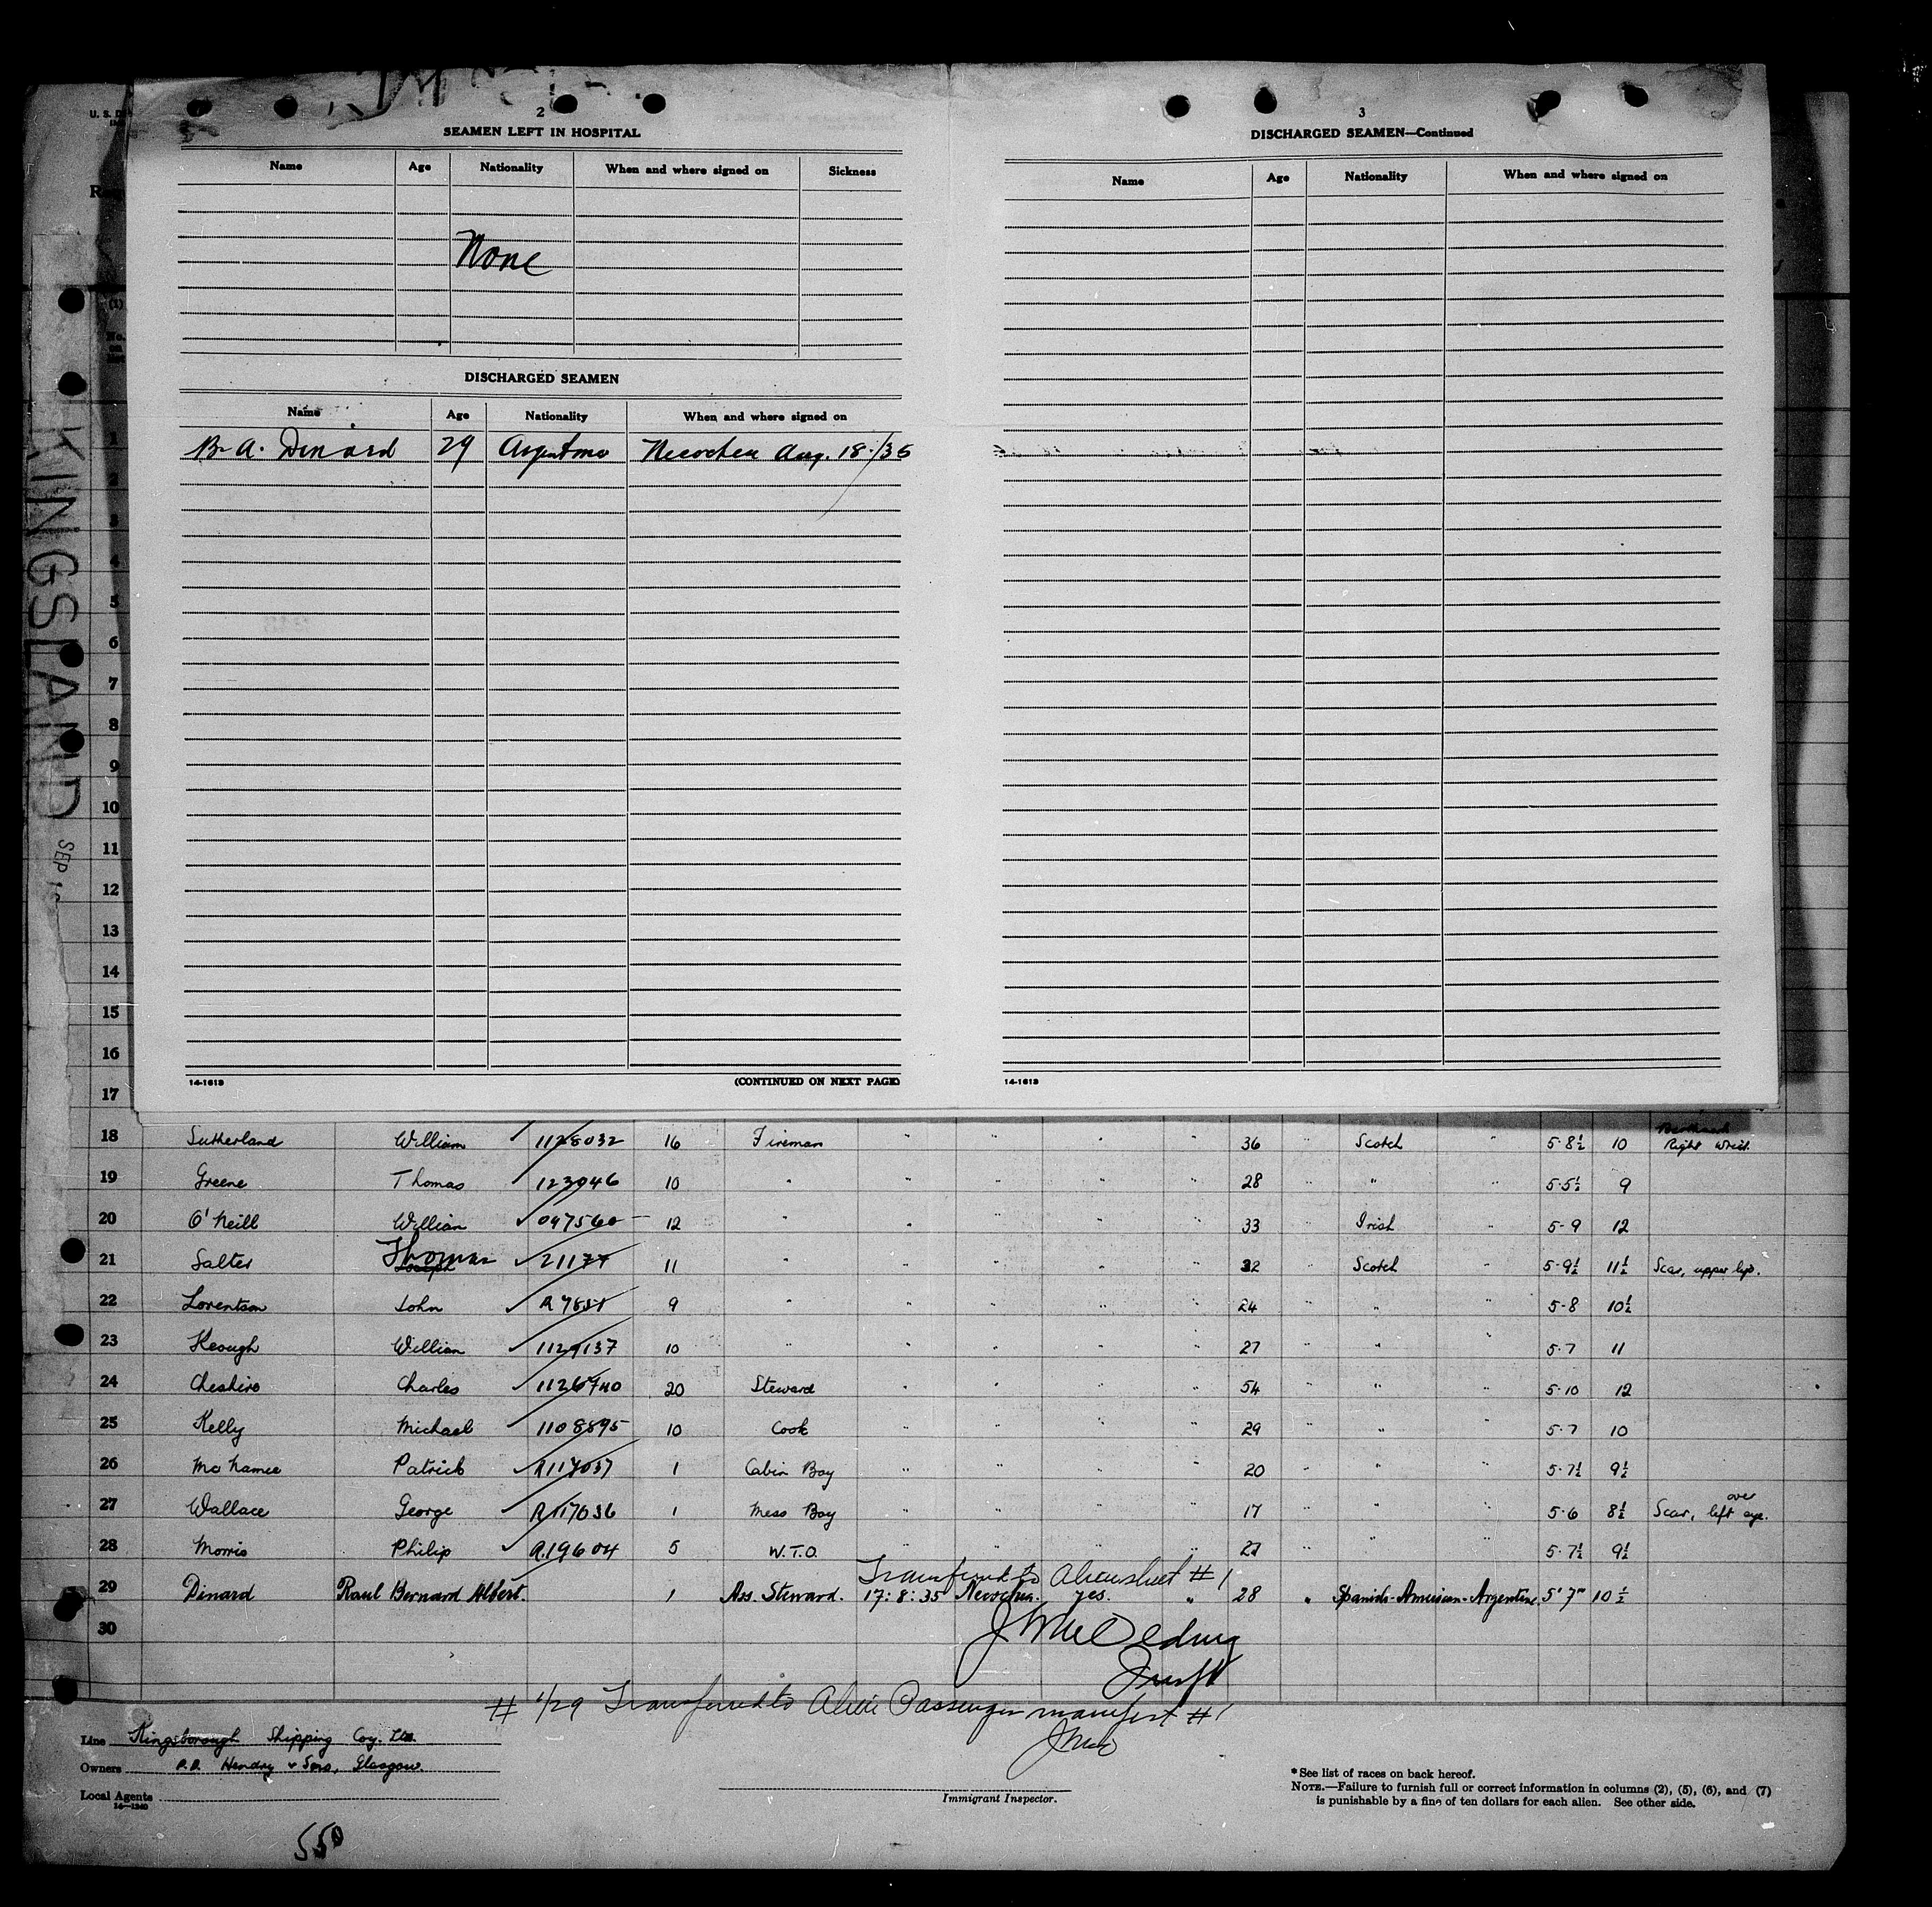 U. S. D
2
SEAMEN LEFT IN HOSPITAL
Name Age Nationality When and where signed on Sickness
None
DISCHARGED SEAMEN
Name Age Nationality When and where signed on
B. A. Dinard 29 Argentine Necochea Aug. 18./35
14-1613 (CONTINUED ON NEXT PAGE)
3
DISCHARGED SEAMEN—Continued
Name Age Nationality When and where signed on
14-1613
KINGSLAND SEP
(1)
No.
on
1
2
3
4
5
6
7
8
9
10
11
12
13
14
15
16
17
18 Sutherland William 1128032 16 Fireman " " " " 36 " Scotch " 5-8½ 10 Right Wrist.
19 Greene Thomas 123946 10 " " " " " 28 " " " 5-5½ 9
20 O'Neill William 047560 12 " " " " " 33 " Irish " 5-9 12
21 Salter Thomas 21177 11 " " " " " 32 " Scotch " 5-9½ 11½ Scar, upper lip.
22 Lorentson John R 7851 9 " " " " " 24 " " " 5-8 10½
23 Keough William 1129137 10 " " " " " 27 " " " 5-7 11
24 Cheshire Charles 1126740 20 Steward " " " " 54 " " " 5-10 12
25 Kelly Michael 1108895 10 Cook " " " " 29 " " " 5-7 10
26 McNamee Patrick R117037 1 Cabin Boy " " " " 20 " " " 5-7½ 9½
27 Wallace George R117036 1 Mess Boy " " " " 17 " " " 5-6 8½ Scar, over left eye.
28 Morris Philip R.19604 5 W.T.O. " " " " 27 " " " 5-7½ 9½
Transferred to Alien sheet # 1
29 Dinard Raul Bernard Albert. 1 Ass. Steward. 17:8:35 Necochea. yes. " 28 " Spanish-American-Argentine. 5' 7" 10½
30
# 1/29 Transferred to Alien Passenger manifest # 1
Line Kingsborough Shipping Coy. Ltd.
Owners P.D. Hendry & Sons, Glasgow.
Local Agents
14—1240
Immigrant Inspector.
* See list of races on back hereof.
NOTE.—Failure to furnish full or correct information in columns (2), (5), (6), and (7)
is punishable by a fine of ten dollars for each alien. See other side.
550